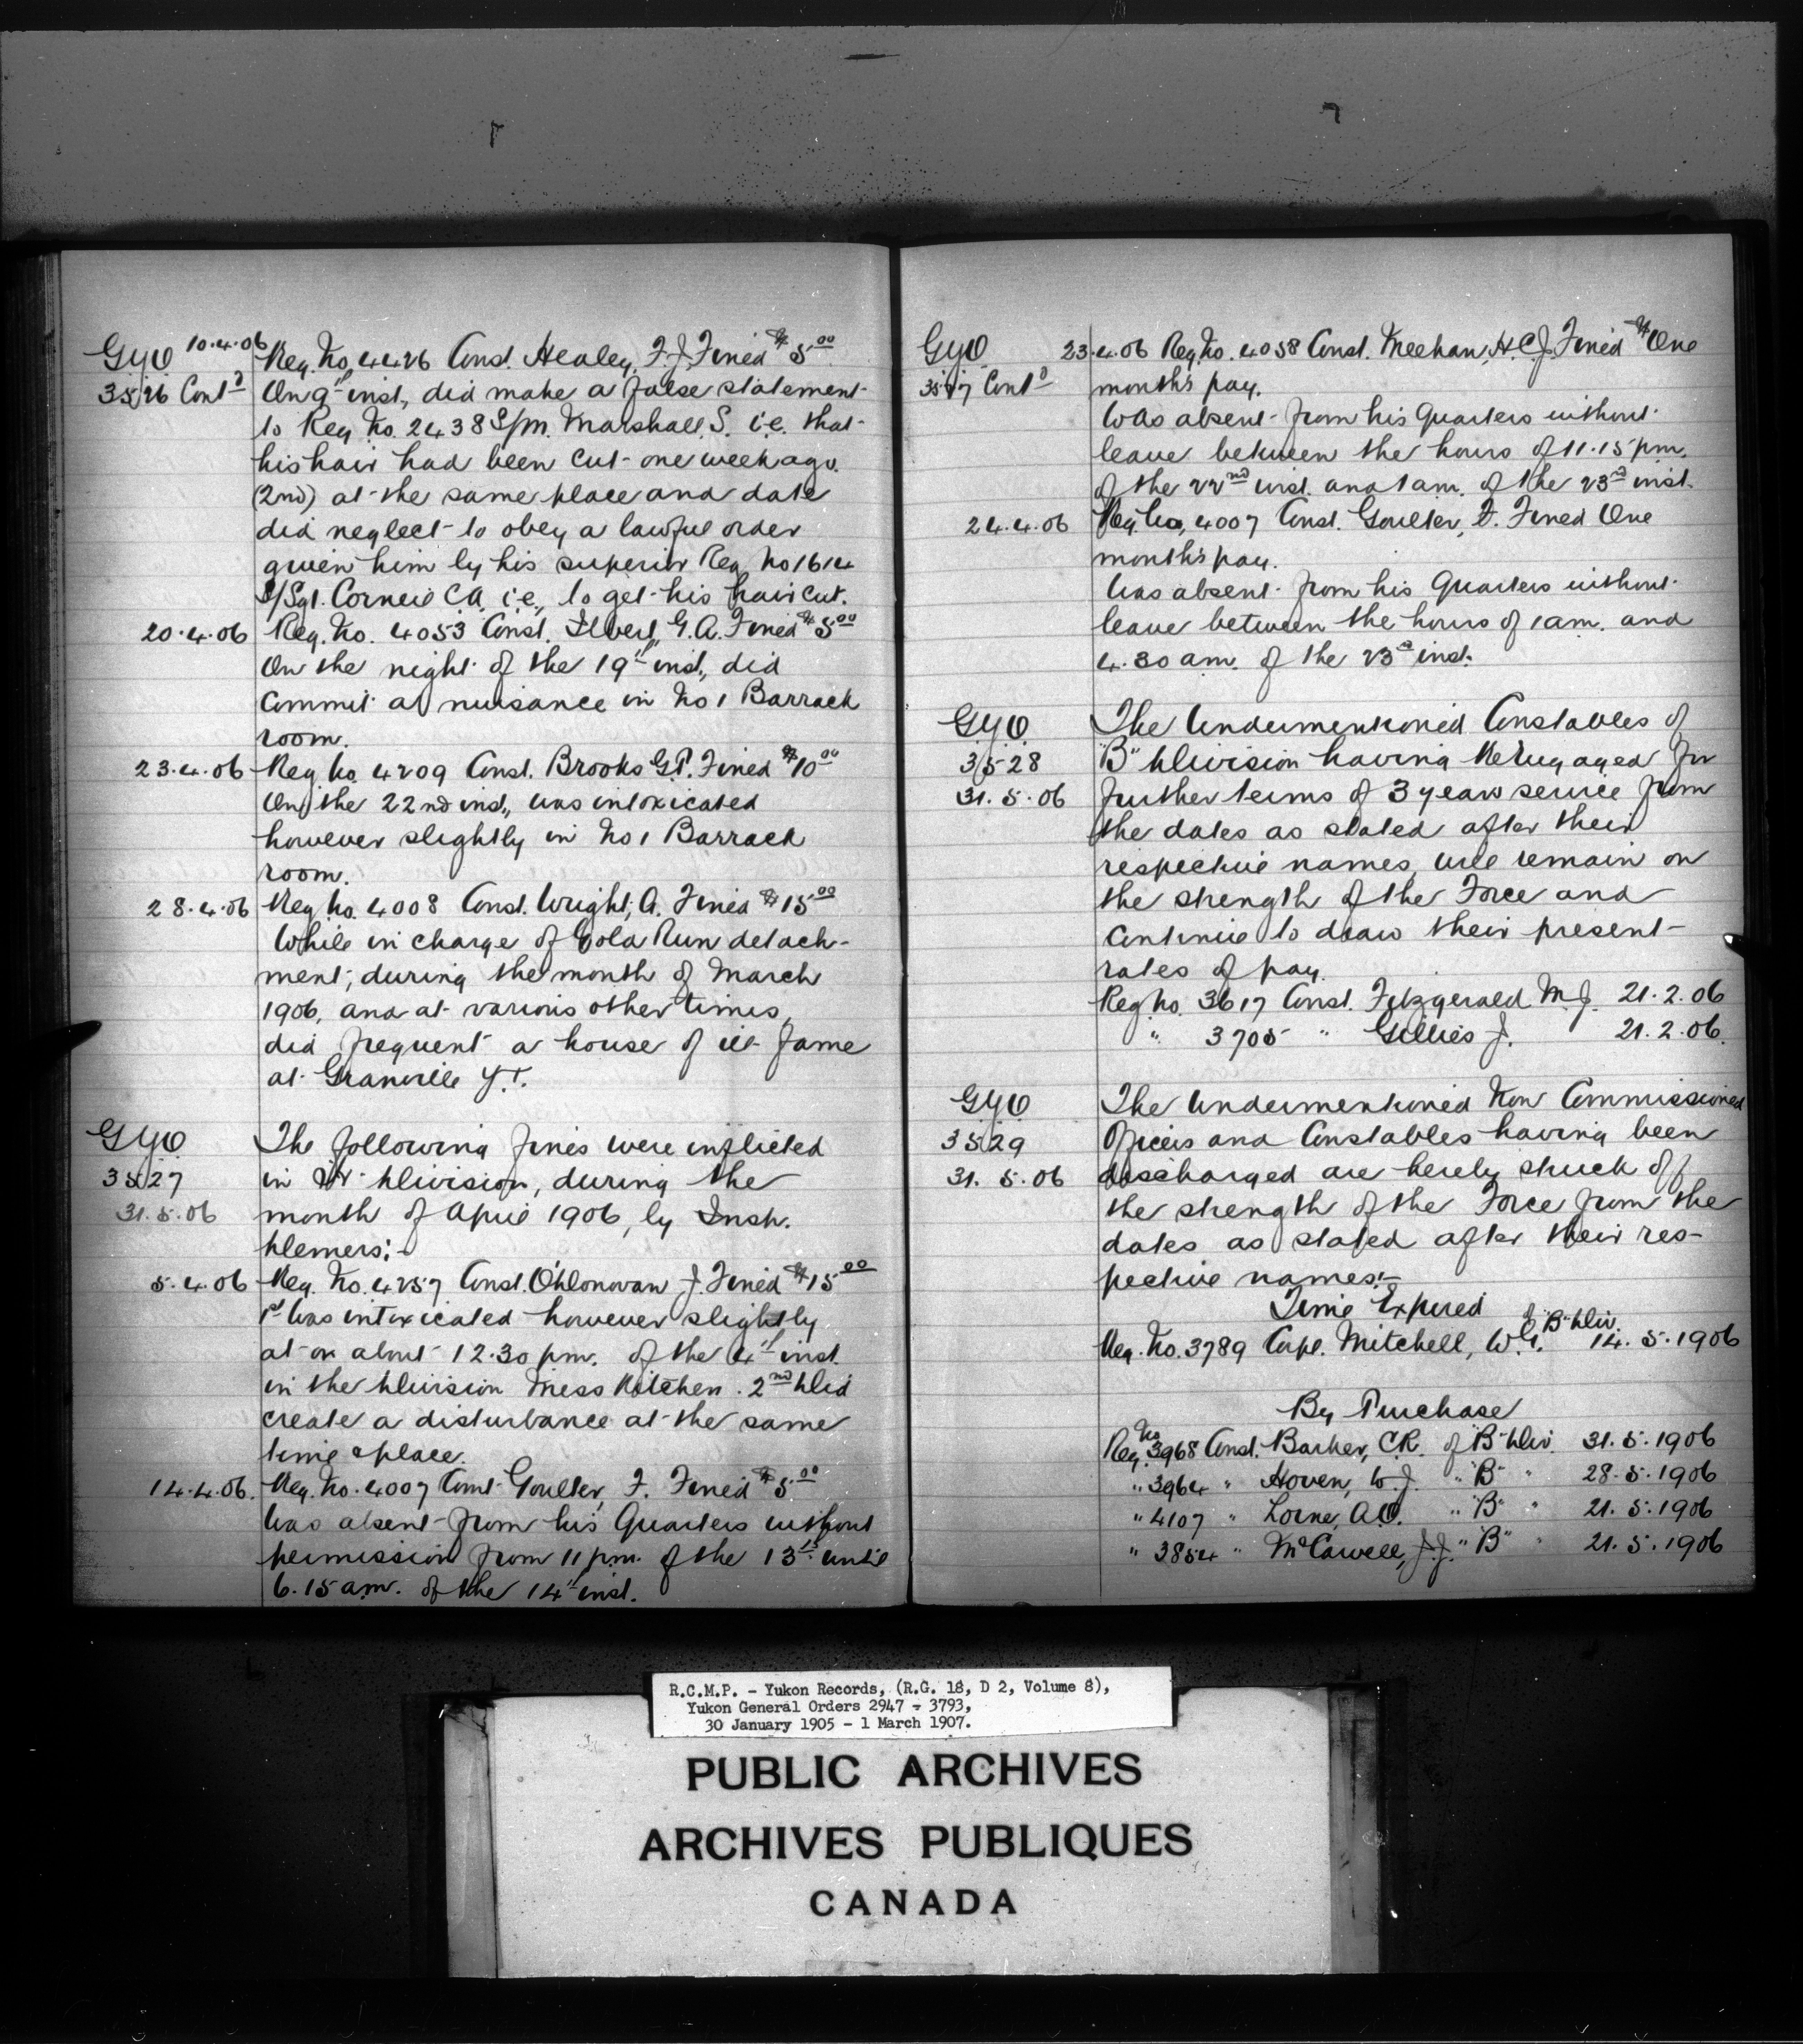 GYO 10.4.06 Reg. No. 4426 Const. Healey, F.J. Fined $5.00
3526 Contd On 9th inst, did make a false statement
to Reg No. 2438 S/M. Marshall, S. i.e. that
his hair had been cut one week ago.
(2nd) at the same place and date
did neglect to obey a lawful order
given him by his superior Reg No 1614
S/Sgt. Corneil C.A. i.e., to get his hair cut.
20.4.06 Reg. No. 4053 Const. G.A. Fined $5.00
On the night of the 19th inst, did
Commit a nuisance in No 1 Barrack
room.
23.4.06 Reg No. 4209 Const. Brooks G.P. Fined $10.00
On the 22nd inst, was intoxicated
however slightly in No 1 Barrack
room.
28.4.06 Reg No. 4008 Const. Wright, A. Fined $15.00
While in charge of Gold Run detach-
ment, during the month of March
1906, and at various other times,
did frequent a house of ill fame
at Granville Y.T.
GYO The following fines were inflicted
3527 in Division, during the
31.5.06 month of April 1906, by Insp.
Demers:-
5.4.06 Reg. No. 4257 Const. O'Donovan J. Fined $15.00
1st Was intoxicated however slightly
at or about 12.30 pm. of the 4th inst.
in the Division Mess Kitchen. 2nd Did
create a disturbance at the same
time & place.
14.4.06. Reg. No. 4007 Const. Goulter, F. Fined $5.00
Was absent from his Quarters without
permission from 11 p.m. of the 13th until
6.15 am. of the 14th inst.
GYO 23.4.06 Reg. No. 4058 Const. Meehan, H.C.J. Fined One
3527 Contd month's pay.
Was absent from his Quarters without
leave between the hours of 11.15 pm.
of the 22nd inst. and 1 am. of the 23rd inst.
24.4.06 Reg. No. 4007 Const. Goulter, F. Fined One
month's pay.
Was absent from his Quarters without
leave between the hours of 1 am. and
4.30 am. of the 23rd inst.
GYO The Undermentioned Constables of
3528 "B" Division having Re-engaged for
31.5.06 further terms of 3 years service from
the dates as stated after their
respective names, will remain on
the strength of the Force and
continue to draw their present
rates of pay.
Reg No. 3617 Const. Fitzgerald M.J. 21.2.06
" 3705 " Gillies J. 21.2.06.
GYO The Undermentioned Non Commissioned
3529 Officers and Constables having been
31.5.06 discharged are hereby struck off
the strength of the Force from the
dates as stated after their res-
pective names:-
Time Expired
Reg. No. 3789 Corpl. Mitchell, W.G. of "B" Div. 14.5.1906
By Purchase
Reg. No 3968 Const. Barker, C.R. of "B" Div. 31.5.1906
" 3964 " Hoven, W.J. " "B" " 28.5.1906
" 4107 " Lorne, A.O. " "B" " 21.5.1906
" 3854 " J.J. " "B" " 21.5.1906
R.C.M.P. - Yukon Records, (R.G. 18, D 2, Volume 8),
Yukon General Orders 2947 - 3793,
30 January 1905 - 1 March 1907.
PUBLIC ARCHIVES
ARCHIVES PUBLIQUES
CANADA